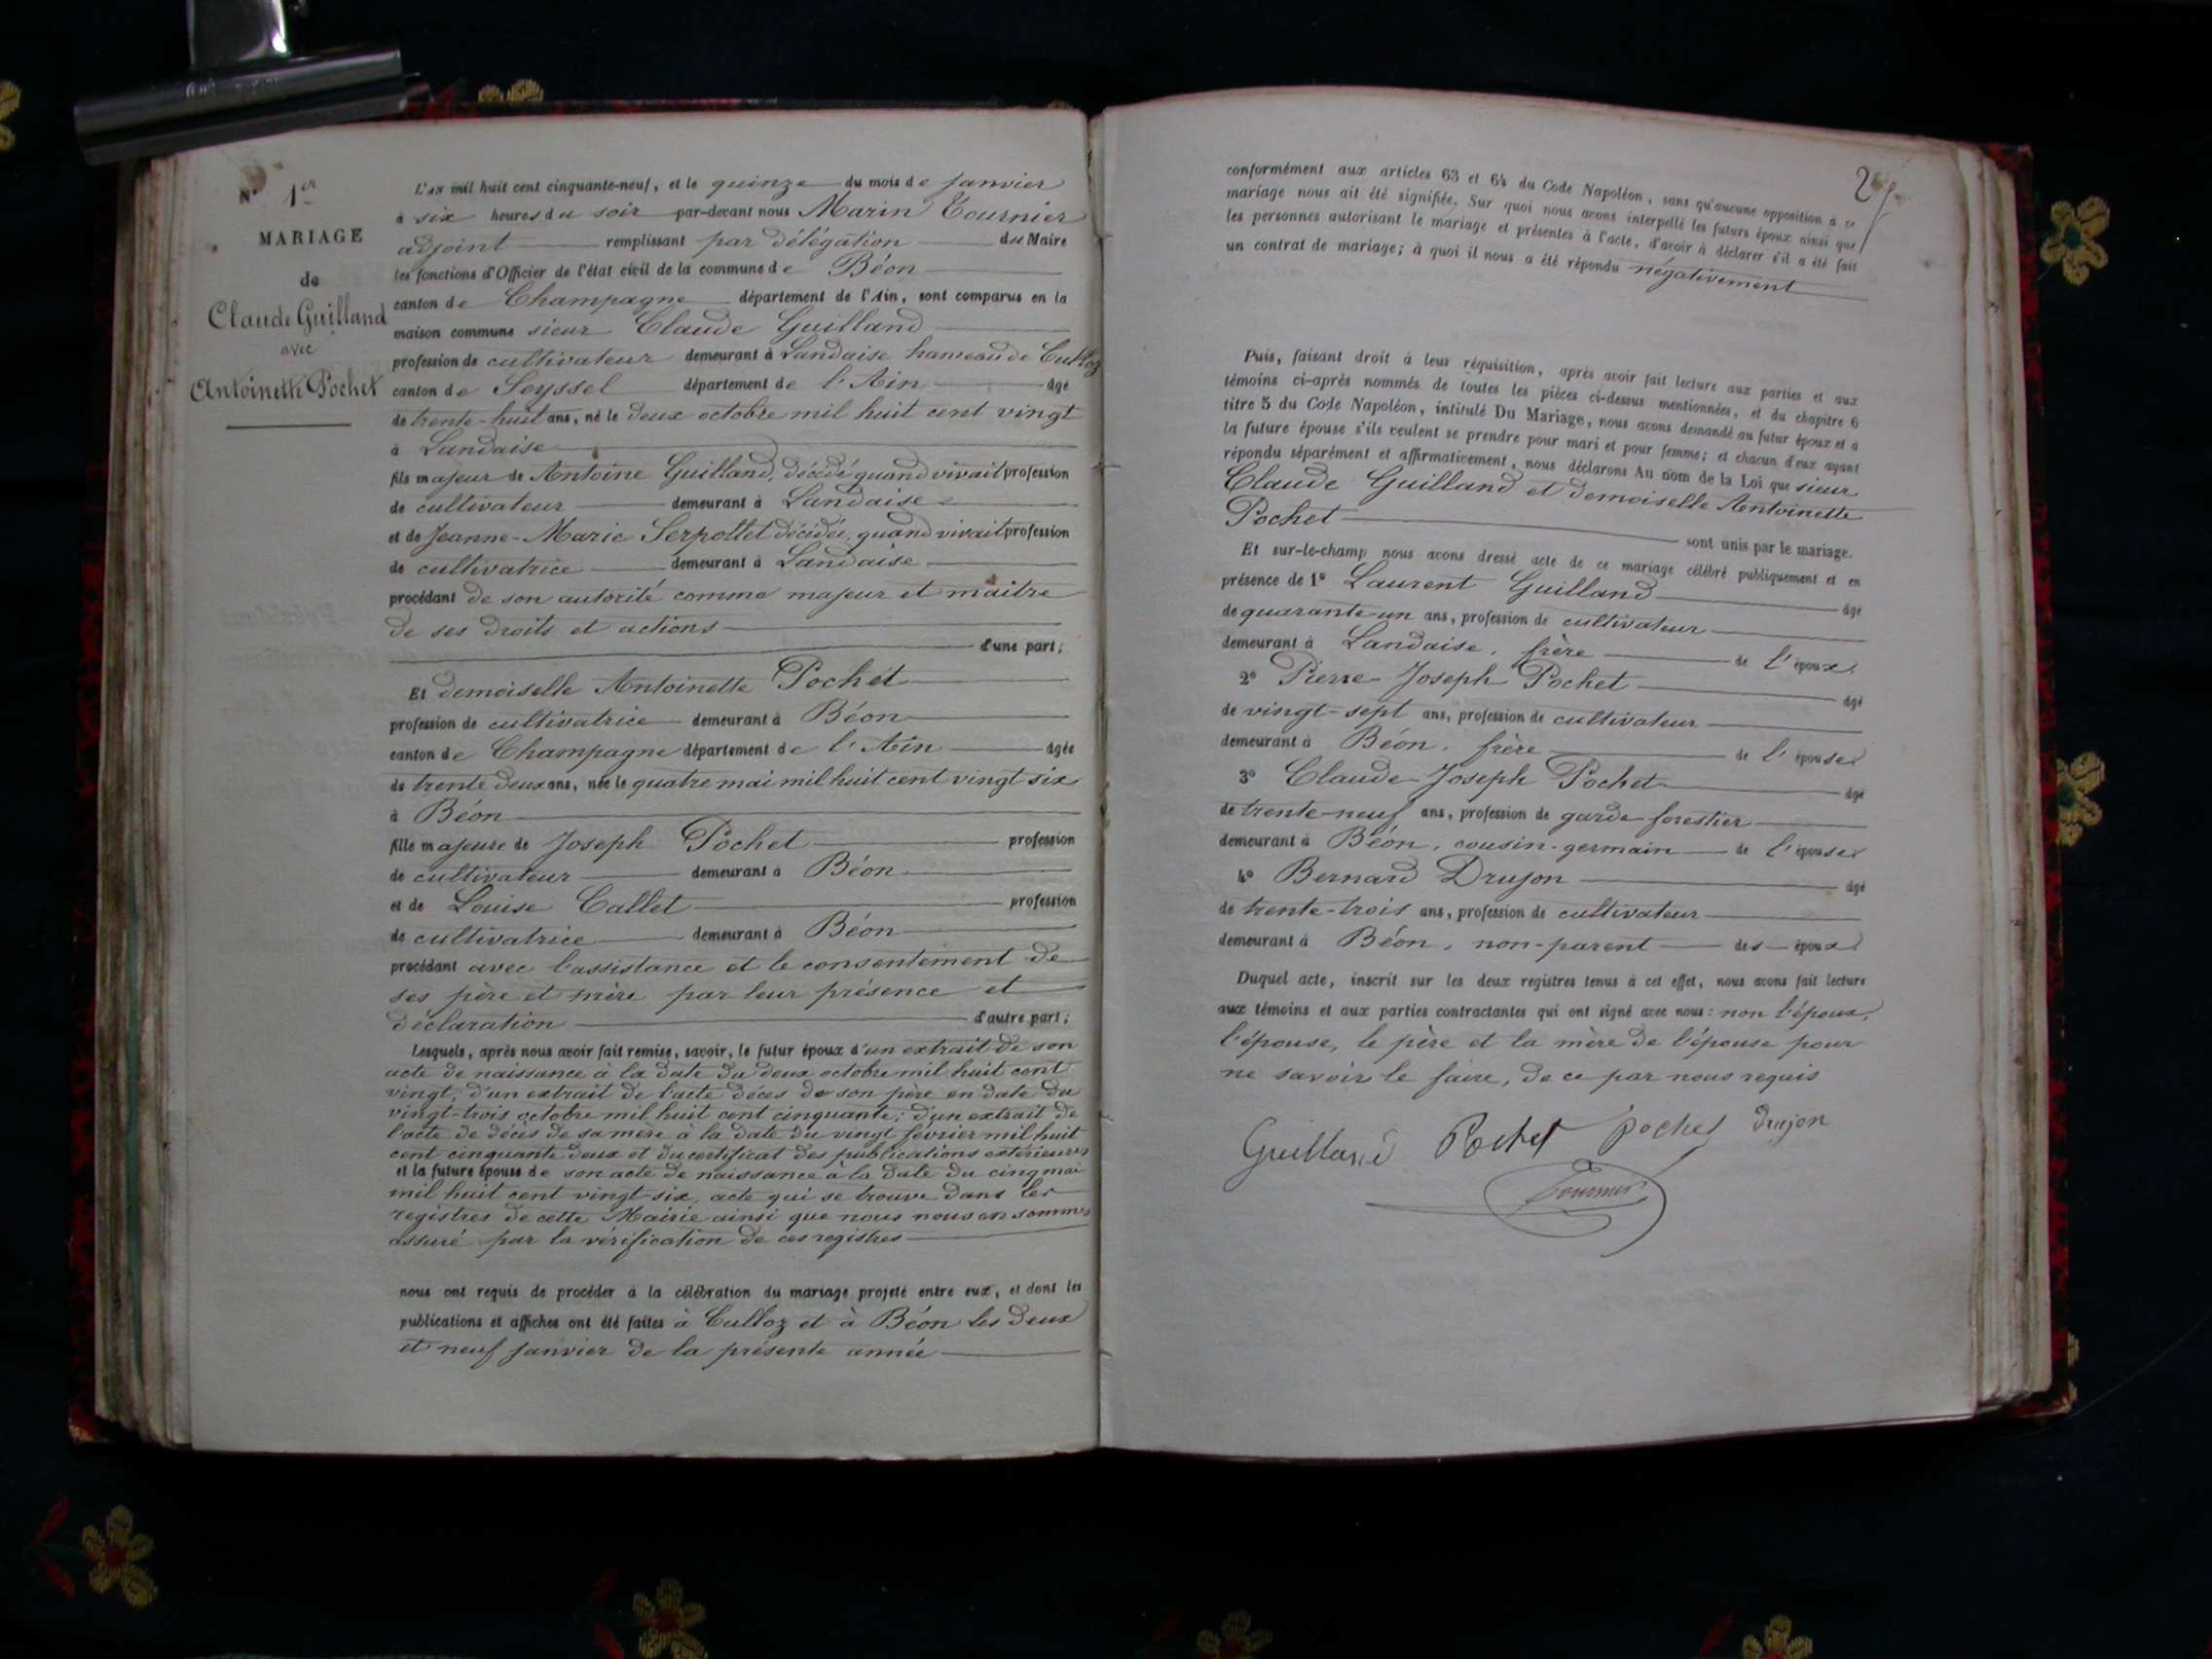 N° 1er
MARIAGE
de
Claude Guilland
avec
Antoinette Pochet
L'AN mil huit cent cinquante-neuf, et le quinze du mois de janvier
à six heures du soir par-devant nous Marin Tournier
adjoint remplissant par délégation du Maire
les fonctions d'Officier de l'état civil de la commune de Béon
canton de Champagne département de l'Ain, sont comparus en la
maison commune sieur Claude Guilland
profession de cultivateur demeurant à Landaise hameau de Culloz
canton de Seyssel département de l'Ain âgé
de trente-huit ans, né le deux octobre mil huit cent vingt
à Landaise
fils majeur de Antoine Guilland, décédé quand vivait profession
de cultivateur demeurant à Landaise
et de Jeanne-Marie Serpollet décédée, quand vivait profession
de cultivatrice demeurant à Landaise
procédant de son autorité comme majeur et maître
de ses droits et actions
d'une part;
Et demoiselle Antoinette Pochet
profession de cultivatrice demeurant à Béon
canton de Champagne département de l'Ain âgée
de trente deux ans, née le quatre mai mil huit cent vingt six
à Béon
fille majeure de Joseph Pochet profession
de cultivateur demeurant à Béon
et de Louise Callet profession
de cultivatrice demeurant à Béon
procédant avec l'assistance et le consentement de
ses père et mère par leur présence et
déclaration d'autre part;
Lesquels, après nous avoir fait remise, savoir, le futur époux d'un extrait de son
acte de naissance à la date du deux octobre mil huit cent
vingt, d'un extrait de l'acte déces de son père en date du
vingt-trois octobre mil huit cent cinquante; d'un extrait de
l'acte de décès de sa mère à la date du vingt février mil huit
cent cinquante deux et du certificat des publications extérieures
et la future épouse de son acte de naissance à la date du cinq mai
mil huit cent vingt-six, acte qui se trouve dans les
registres de cette Mairie ainsi que nous nous en sommes
assuré par la vérification de ces registres
nous ont requis de procéder à la célébration du mariage projeté entre eux, et dont les
publications et affiches ont été faites à Culloz et à Béon les deux
et neuf janvier de la présente année
conformément aux articles 63 et 64 du Code Napoléon, sans qu'aucune opposition à ce
mariage nous ait été signifiée. Sur quoi nous avons interpellé les futurs époux ainsi que
les personnes autorisant le mariage et présentes à l'acte, d'avoir à déclarer s'il a été fait
un contrat de mariage; à quoi il nous a été répondu négativement
Puis, faisant droit à leur réquisition, après avoir fait lecture aux parties et aux
témoins ci-après nommés de toutes les pièces ci-dessus mentionnées, et du chapitre 6
titre 5 du Code Napoléon, intitulé Du Mariage, nous avons demandé au futur époux et à
la future épouse s'ils veulent se prendre pour mari et pour femme; et chacun d'eux ayant
répondu séparément et affirmativement, nous déclarons Au nom de la Loi que sieur
Claude Guilland et demoiselle Antoinette
Pochet sont unis par le mariage.
Et sur-le-champ nous avons dressé acte de ce mariage célébré publiquement et en
présence de 1° Laurent Guilland âgé
de quarante-un ans, profession de cultivateur
demeurant à Landaise, frère de l'époux
2° Pierre-Joseph Pochet âgé
de vingt-sept ans, profession de cultivateur
demeurant à Béon, frère de l'épouse
3° Claude-Joseph Pochet âgé
de trente-neuf ans, profession de garde forestier
demeurant à Béon, cousin-germain de l'épouse
4° Bernard Drujon âgé
de trente-trois ans, profession de cultivateur
demeurant à Béon, non-parent des époux
Duquel acte, inscrit sur les deux registres tenus à cet effet, nous avons fait lecture
aux témoins et aux parties contractantes qui ont signé avec nous: non l'époux,
l'épouse, le père et la mère de l'épouse pour
ne savoir le faire, de ce par nous requis
Guilland Pochet pochet Drujon
Tournier